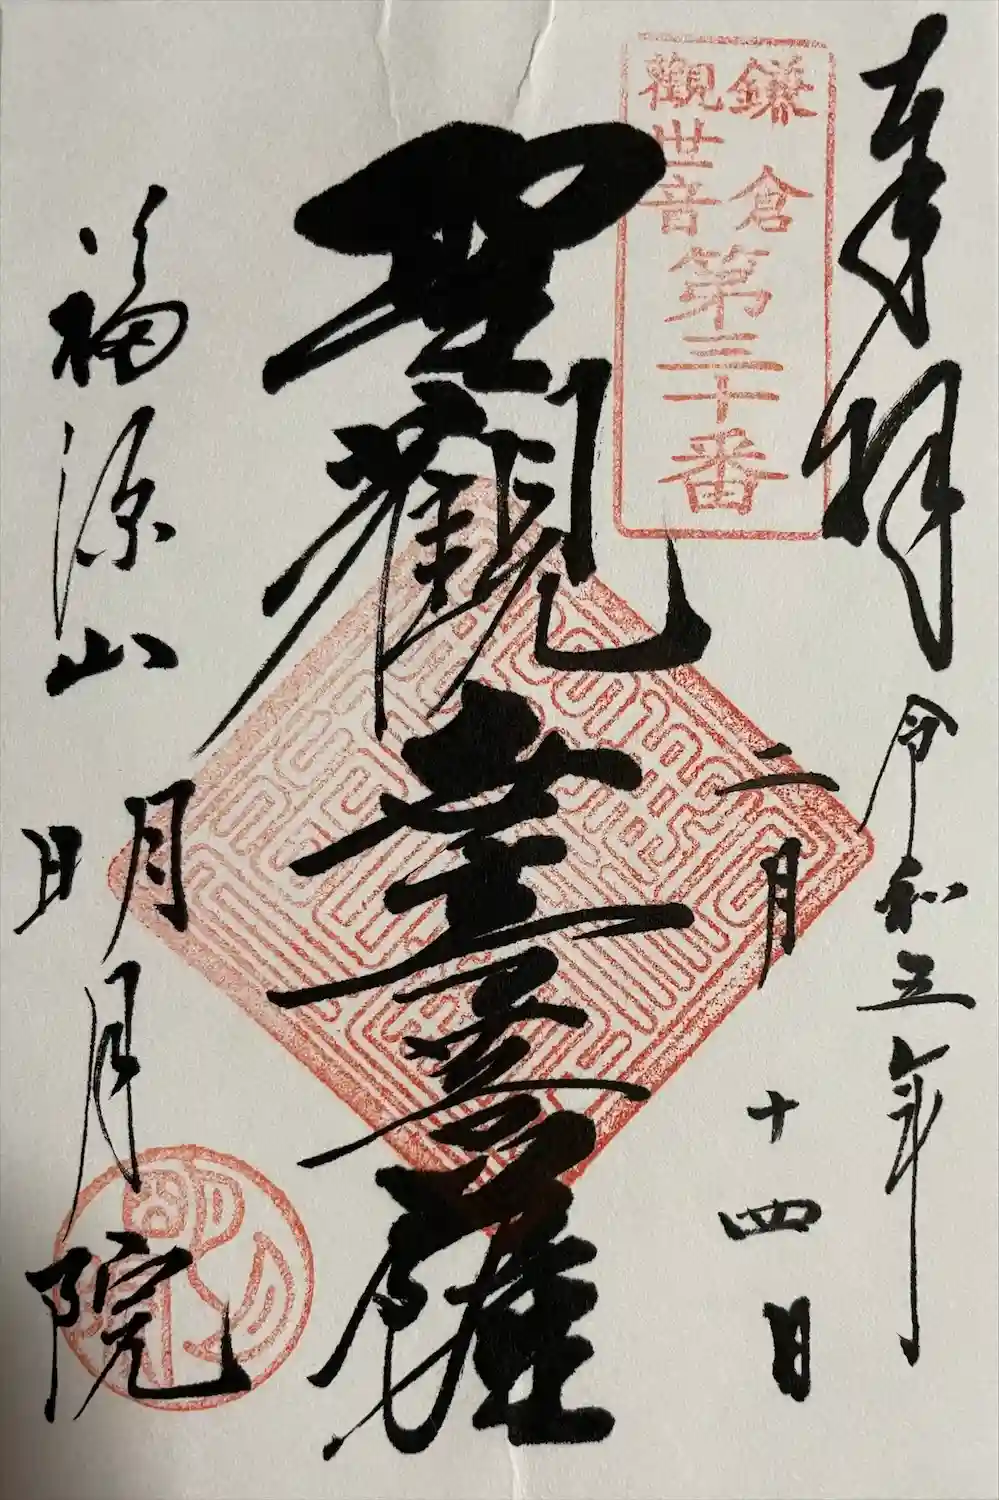 奉拝 令和五年
二月十四日
鎌倉
觀世音
第三十番
聖觀音菩薩
福源山 明月院